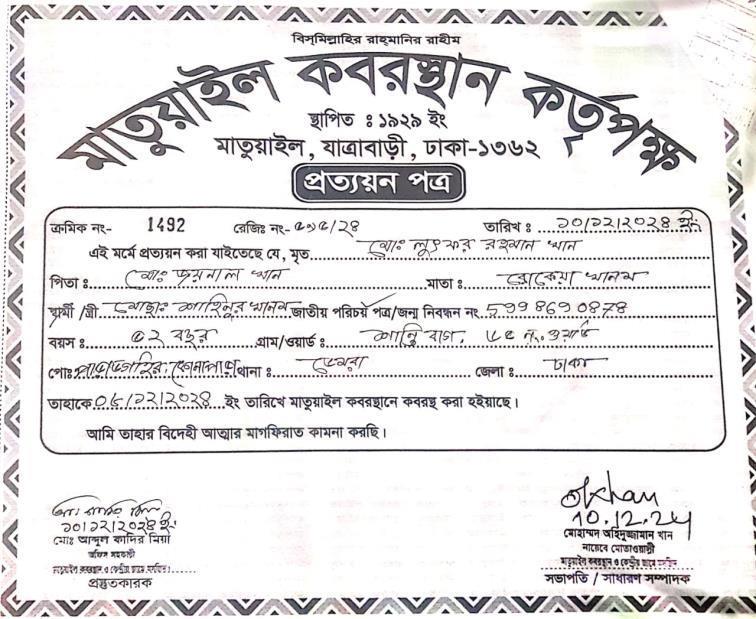 বিসমিল্লাহির রাহমানির রাহীম
মাতুয়াইল কবরস্থান কর্তৃপক্ষ
স্থাপিত ঃ ১৯২৯ ইং
মাতুয়াইল, যাত্রাবাড়ী, ঢাকা-১৩৬২
প্রত্যয়ন পত্র
ক্রমিক নং- 1492 রেজিঃ নং- ৫১৫/২৪ তারিখ ঃ ১০/১২/২০২৪ ইং
এই মর্মে প্রত্যয়ন করা যাইতেছে যে, মৃত মোঃ লুৎফর রহমান খান
পিতা ঃ মোঃ জয়নাল খান মাতা ঃ রোকেয়া খানম
স্বামী /স্ত্রী মোছাঃ শাহিনুর খানম জাতীয় পরিচয় পত্র/জন্ম নিবন্ধন নং 5998690878
বয়স ঃ ৫২ বছর গ্রাম/ওয়ার্ড ঃ শান্তি বাগ, ৬৫ নং ওয়ার্ড
পোঃ থানা ঃ ডেমরা জেলা ঃ ঢাকা
তাহাকে ০৬/১২/২০২৪ ইং তারিখে মাতুয়াইল কবরস্থানে কবরস্থ করা হইয়াছে।
আমি তাহার বিদেহী আত্মার মাগফিরাত কামনা করছি।
১০/১২/২০২৪ ইং
মোঃ আব্দুল কাদির মিয়া
অফিস সহকারী
মাতুয়াইল কবরস্থান ও কেন্দ্রীয় জামে মসজিদ
প্রস্তুতকারক
10.12.24
মোহাম্মদ অহিদুজ্জামান খান
নায়েবে মোতাওয়াল্লী
মাতুয়াইল কবরস্থান ও কেন্দ্রীয় জামে মসজিদ
সভাপতি / সাধারণ সম্পাদক